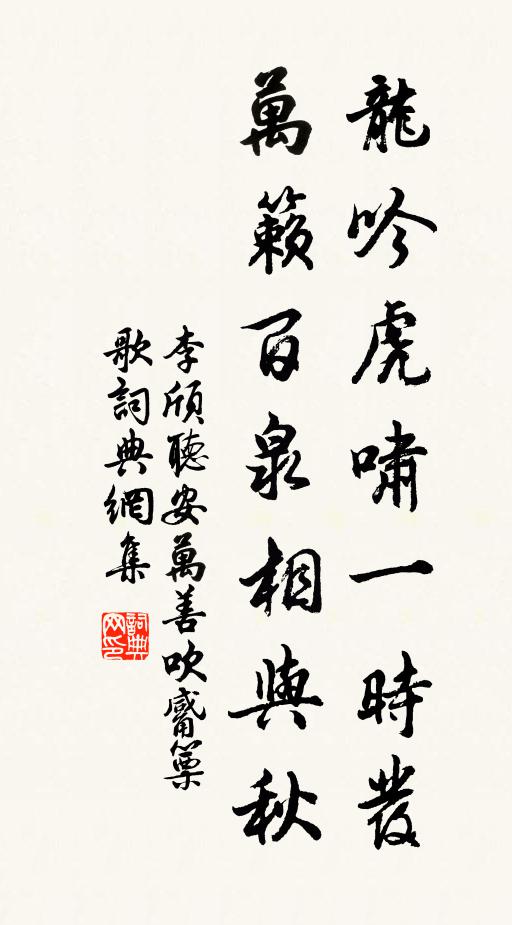 龍吟虎嘯一時發
萬籟百泉相與秋
李頎聽安萬善吹觱篥
歌詞典網集
詞典網印